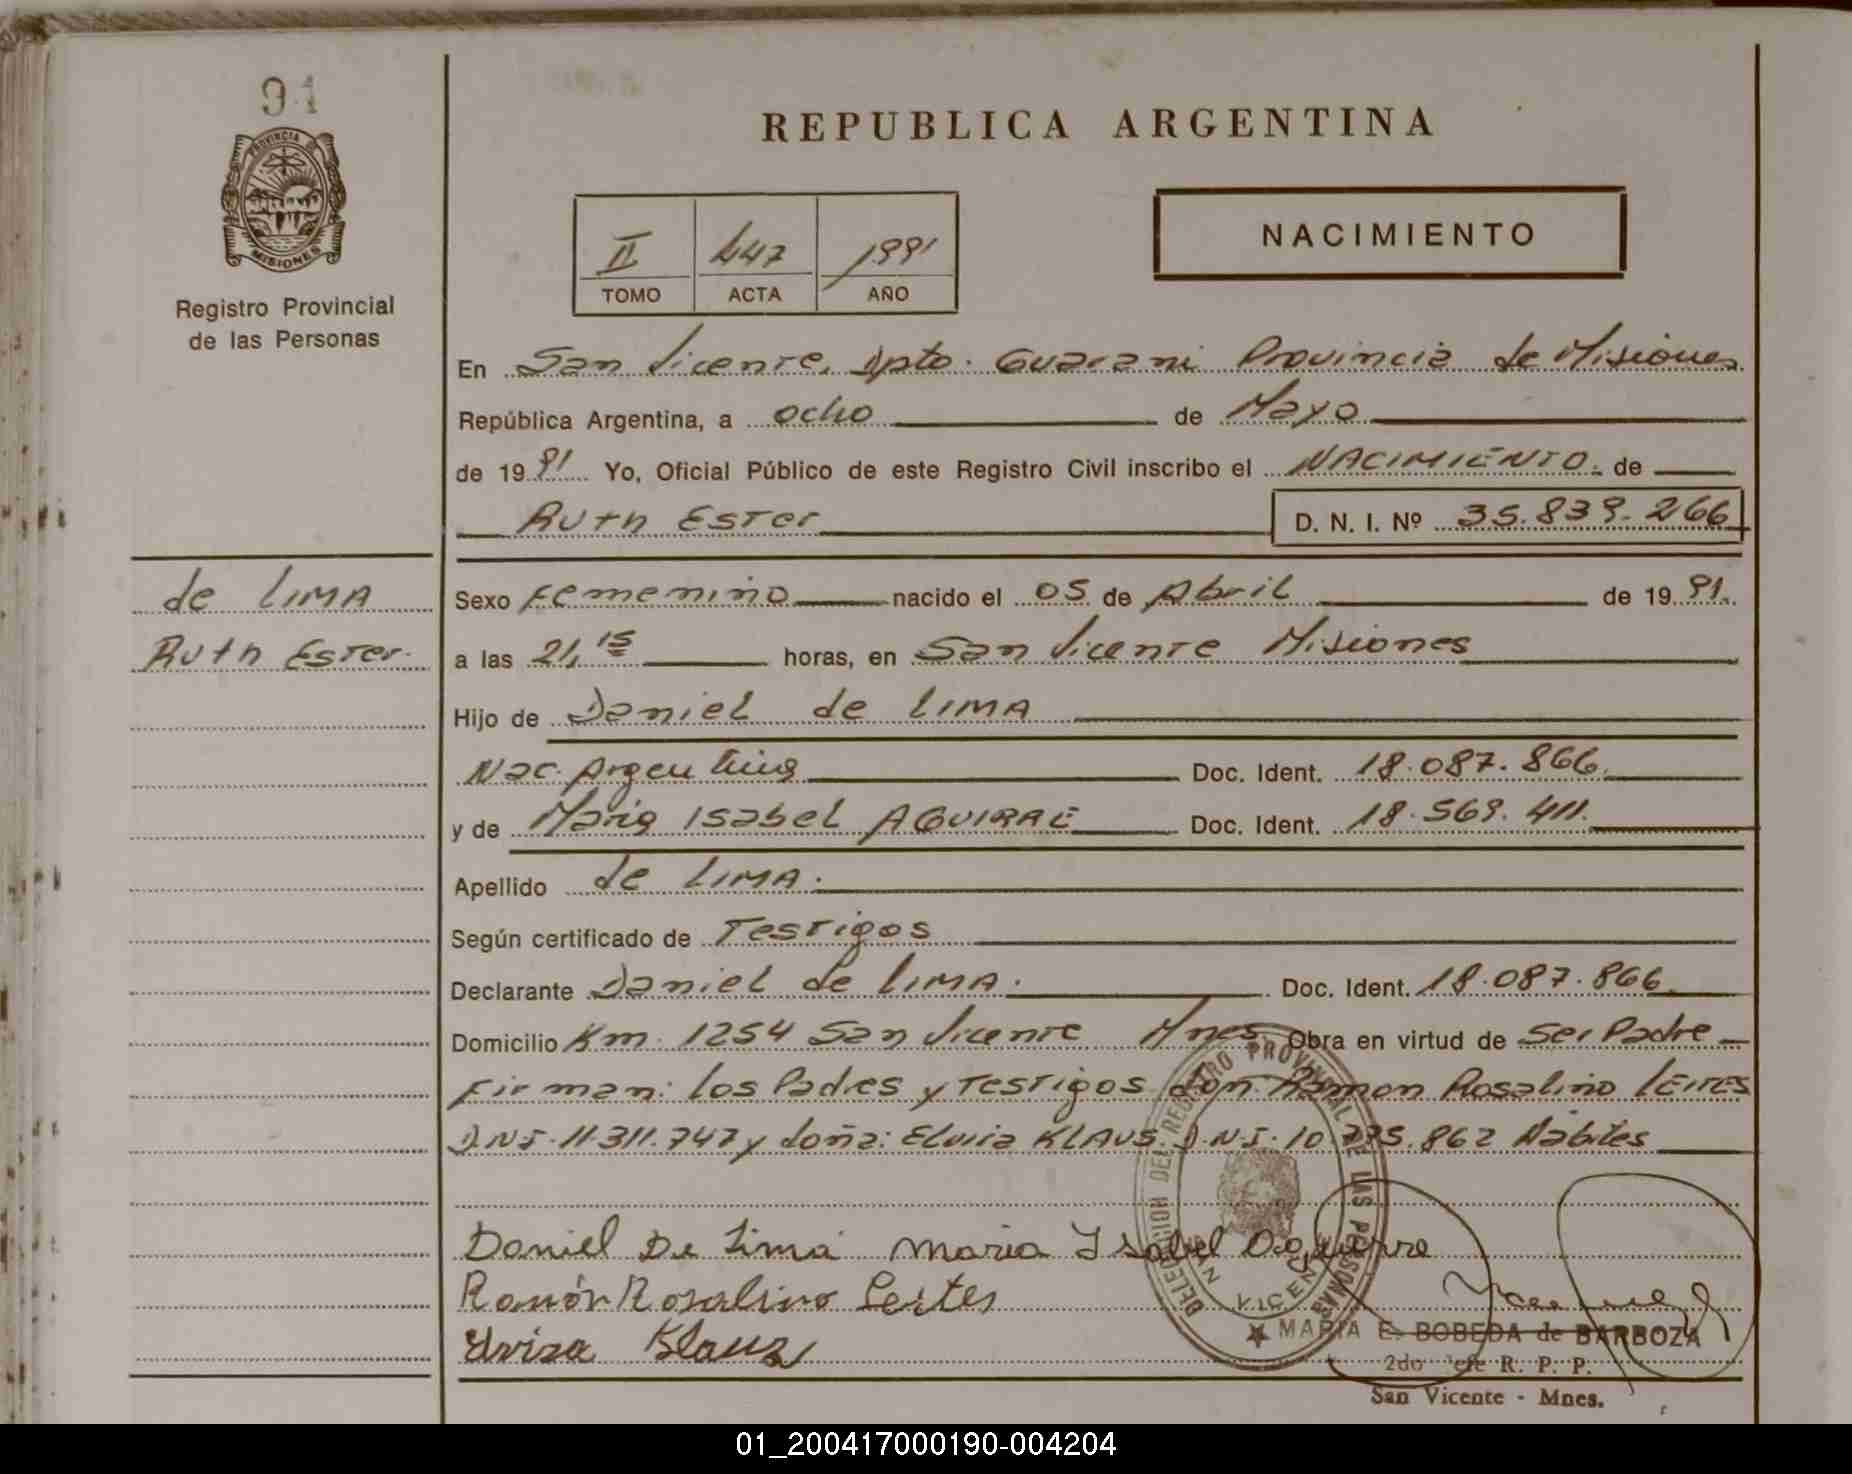 91
PROVINCIA DE
MISIONES
Registro Provincial
de las Personas
REPUBLICA ARGENTINA
II 447 1991
TOMO ACTA AÑO
NACIMIENTO
En San Vicente, Dpto. Guarani Provincia de Misiones
República Argentina, a ocho de Mayo
de 1991 Yo, Oficial Público de este Registro Civil inscribo el NACIMIENTO. de
Ruth Ester D. N. I. Nº 35.839.266
de LIMA
Ruth Ester.
Sexo Femenino nacido el 05 de Abril de 1991.
a las 21,15 horas, en San Vicente Misiones
Hijo de Daniel de LIMA
Nac. Argentina Doc. Ident. 18.087.866.
y de Maria Isabel AGUIRRE Doc. Ident. 18.569.411.
Apellido de LIMA.
Según certificado de Testigos
Declarante Daniel de LIMA. Doc. Ident. 18.087.866
Domicilio Km. 1254 San Vicente Mnes. Obra en virtud de Ser Padre
Firman: los Padres y Testigos don: Ramon Rosalino LEITES
D.N.I. 11.311.747 y doña: Elvira KLAUS. D.N.I. 10.775.862 Hábiles
Daniel De Lima Maria Ysabel Aguirre
Ramón Rosalino Leites
Klaus
DELEGACION DEL REGISTRO PROVINCIAL DE LAS PERSONAS
SAN VICENTE
MARIA E. BOBEDA de BARBOZA
2do Jefe R. P. P.
San Vicente - Mnes.
01_200417000190-004204